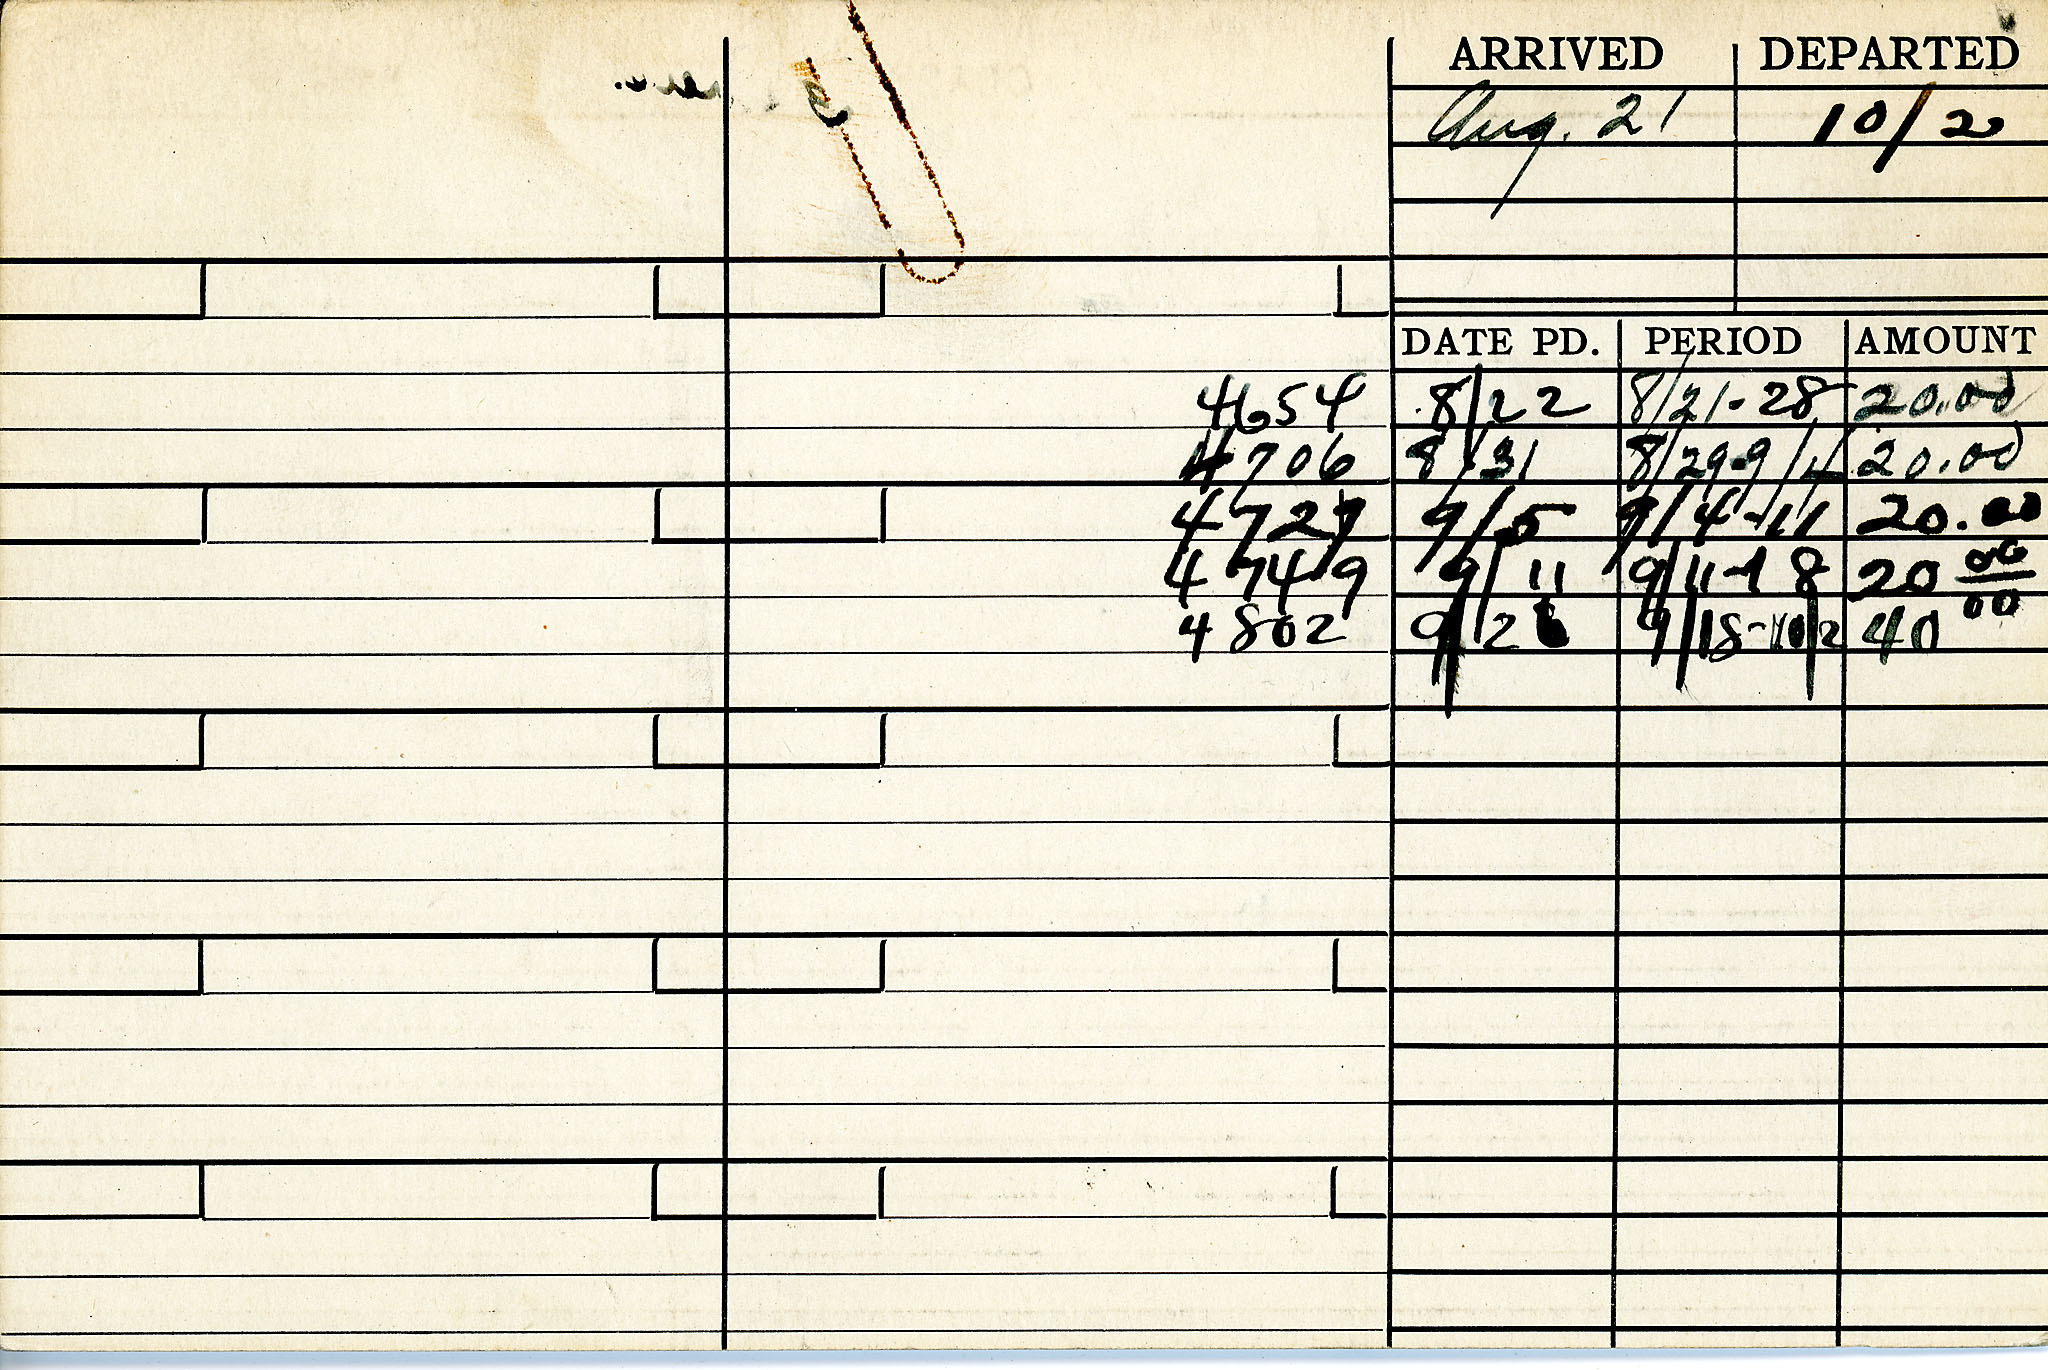 ARRIVED DEPARTED
Aug. 21 10/2
DATE PD. PERIOD AMOUNT
4654 8/22 8/21-28 20.00
4706 8/31 8/29-9/4 20.00
4729 9/5 9/4-11 20.00
4749 9/11 9/11-18 20 00
4802 9/26 9/18-10/2 40 00